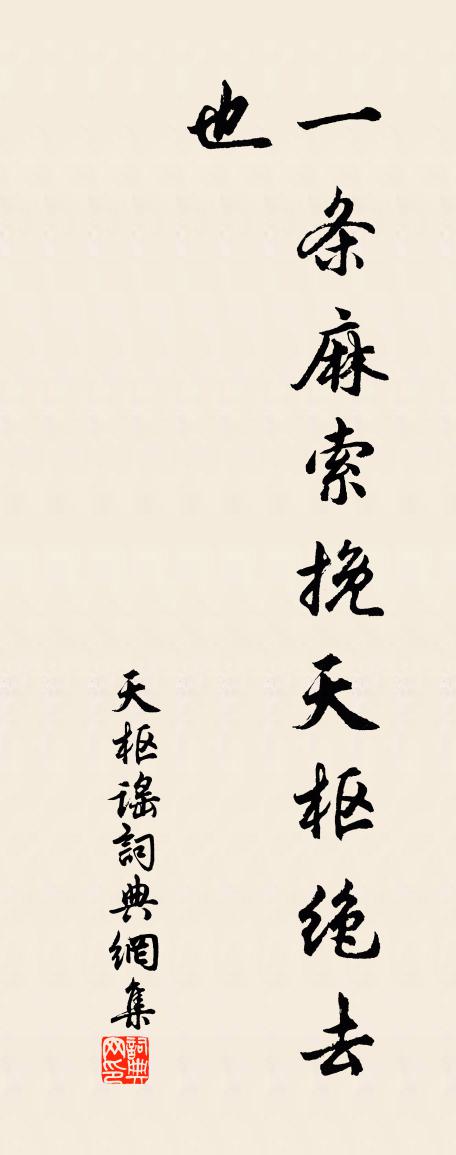 一条麻索挽天枢绝去
也
天枢謡詞典網集
詞典网印